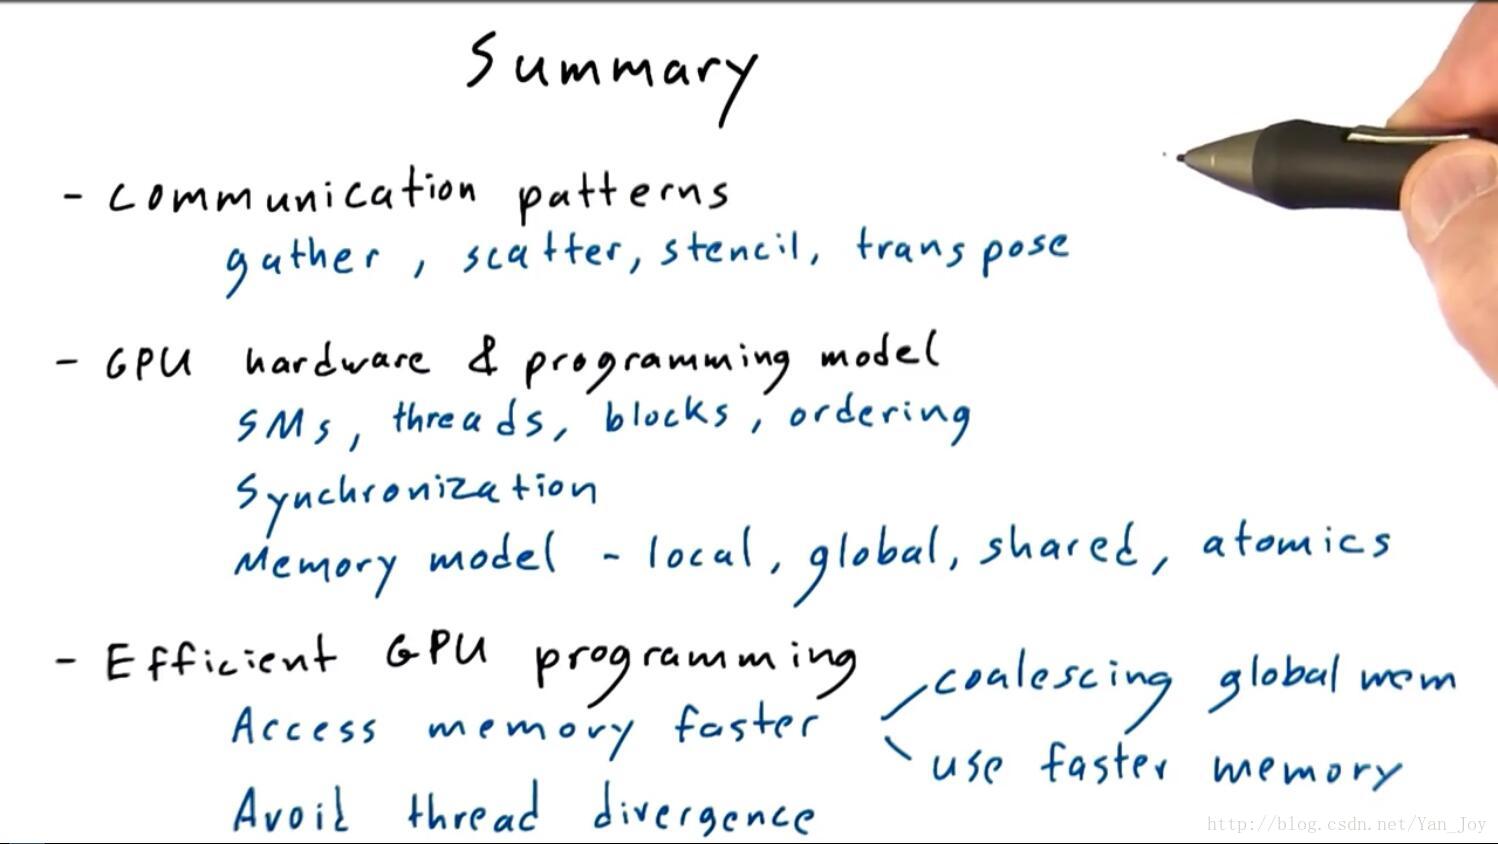 Summary
- Communication patterns
gather, scatter, stencil, transpose
- GPU hardware & programming model
SMs, threads, blocks, ordering
Synchronization
Memory model - local, global, shared, atomics
- Efficient GPU programming
Access memory faster
coalescing global mem
use faster memory
Avoid thread divergence
http://blog.csdn.net/Yan_Joy